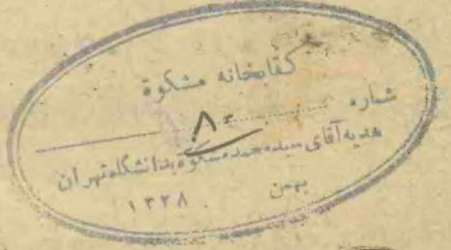 کتابخانه مشکوة
شماره ۸۰
هدیه آقای سید محمد مشکوة بدانشگاه تهران
بهمن ۱۳۲۸